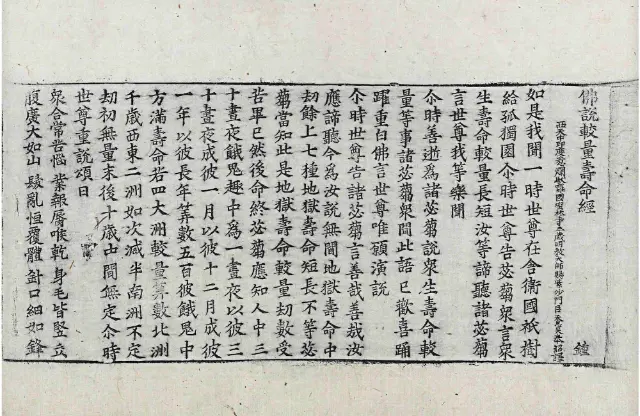 佛說較量壽命經
鐘
如是我聞一時世尊在舍衛國祇樹
給孤獨園尒時世尊告苾蒭衆言衆
生壽命較量長短汝等諦聽諸苾蒭
言世尊我等樂聞
尒時善逝為諸苾蒭說衆生壽命較
量等事諸苾蒭衆聞此語已歡喜踊
躍重白佛言世尊唯願演說
尒時世尊告諸苾蒭言善哉善哉汝
應諦聽今為汝說無間地獄壽命中
劫餘上七種地獄壽命短長不等苾
蒭當知此是地獄壽命較量刼數受
苦畢已然後命終苾蒭應知人中三
十晝夜餓鬼趣中為一晝夜以彼三
十晝夜成彼一月以彼十二月成彼
一年以彼長年筭數五百彼餓鬼中
方滿壽命若四大洲較量算數北洲
千歲西東二洲如次減半南洲不定
劫初無量末後十歲中間無定尒時
世尊重說頌曰
衆合常苦惱 業報屠唯乾 身毛皆竪立
腹廣大如山 鬆亂恒覆體 針口細如鋒